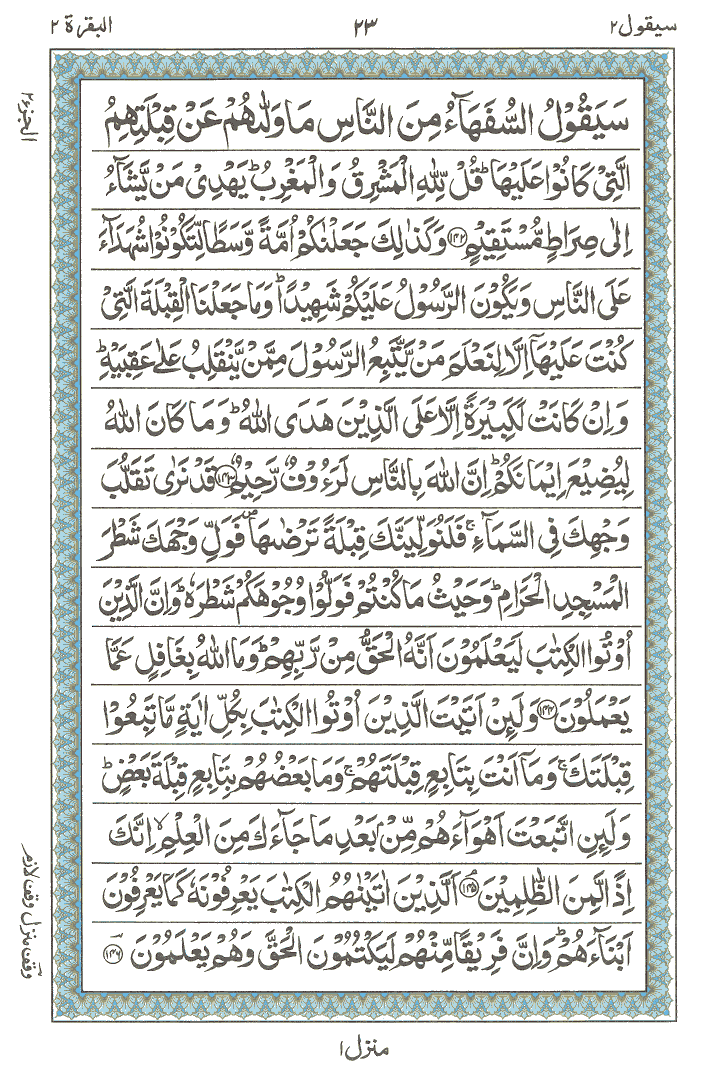 سيقول ٢ ٢٣ البقرة ٢
الجزء ٢
سَيَقُوْلُ السُّفَهَآءُ مِنَ النَّاسِ مَا وَلّٰىهُمْ عَنْ قِبْلَتِهِمُ
الَّتِيْ كَانُوْا عَلَيْهَا ؕ قُلْ لِّلّٰهِ الْمَشْرِقُ وَالْمَغْرِبُ ؕ يَهْدِيْ مَنْ يَّشَآءُ
اِلٰى صِرَاطٍ مُّسْتَقِيْمٍ ﴿۱۴۲﴾ وَكَذٰلِكَ جَعَلْنٰكُمْ اُمَّةً وَّسَطًا لِّتَكُوْنُوْا شُهَدَآءَ
عَلَى النَّاسِ وَيَكُوْنَ الرَّسُوْلُ عَلَيْكُمْ شَهِيْدًا ؕ وَمَا جَعَلْنَا الْقِبْلَةَ الَّتِيْ
كُنْتَ عَلَيْهَآ اِلَّا لِنَعْلَمَ مَنْ يَّتَّبِعُ الرَّسُوْلَ مِمَّنْ يَّنْقَلِبُ عَلٰى عَقِبَيْهِ ؕ
وَاِنْ كَانَتْ لَكَبِيْرَةً اِلَّا عَلَى الَّذِيْنَ هَدَى اللّٰهُ ؕ وَمَا كَانَ اللّٰهُ
لِيُضِيْعَ اِيْمَانَكُمْ ؕ اِنَّ اللّٰهَ بِالنَّاسِ لَرَءُوْفٌ رَّحِيْمٌ ﴿۱۴۳﴾ قَدْ نَرٰى تَقَلُّبَ
وَجْهِكَ فِي السَّمَآءِ ۚ فَلَنُوَلِّيَنَّكَ قِبْلَةً تَرْضٰىهَا ۪ فَوَلِّ وَجْهَكَ شَطْرَ
الْمَسْجِدِ الْحَرَامِ ؕ وَحَيْثُ مَا كُنْتُمْ فَوَلُّوْا وُجُوْهَكُمْ شَطْرَهٗ ؕ وَاِنَّ الَّذِيْنَ
اُوْتُوا الْكِتٰبَ لَيَعْلَمُوْنَ اَنَّهُ الْحَقُّ مِنْ رَّبِّهِمْ ؕ وَمَا اللّٰهُ بِغَافِلٍ عَمَّا
يَعْمَلُوْنَ ﴿۱۴۴﴾ وَلَئِنْ اَتَيْتَ الَّذِيْنَ اُوْتُوا الْكِتٰبَ بِكُلِّ اٰيَةٍ مَّا تَبِعُوْا
قِبْلَتَكَ ۚ وَمَآ اَنْتَ بِتَابِعٍ قِبْلَتَهُمْ ۚ وَمَا بَعْضُهُمْ بِتَابِعٍ قِبْلَةَ بَعْضٍ ؕ
وَلَئِنِ اتَّبَعْتَ اَهْوَآءَهُمْ مِّنْۢ بَعْدِ مَا جَآءَكَ مِنَ الْعِلْمِ ۙ اِنَّكَ
اِذًا لَّمِنَ الظّٰلِمِيْنَ ﴿۱۴۵﴾ اَلَّذِيْنَ اٰتَيْنٰهُمُ الْكِتٰبَ يَعْرِفُوْنَهٗ كَمَا يَعْرِفُوْنَ
اَبْنَآءَهُمْ ؕ وَاِنَّ فَرِيْقًا مِّنْهُمْ لَيَكْتُمُوْنَ الْحَقَّ وَهُمْ يَعْلَمُوْنَ ﴿۱۴۶﴾
وقف منزل وقف لازم
منزل ۱